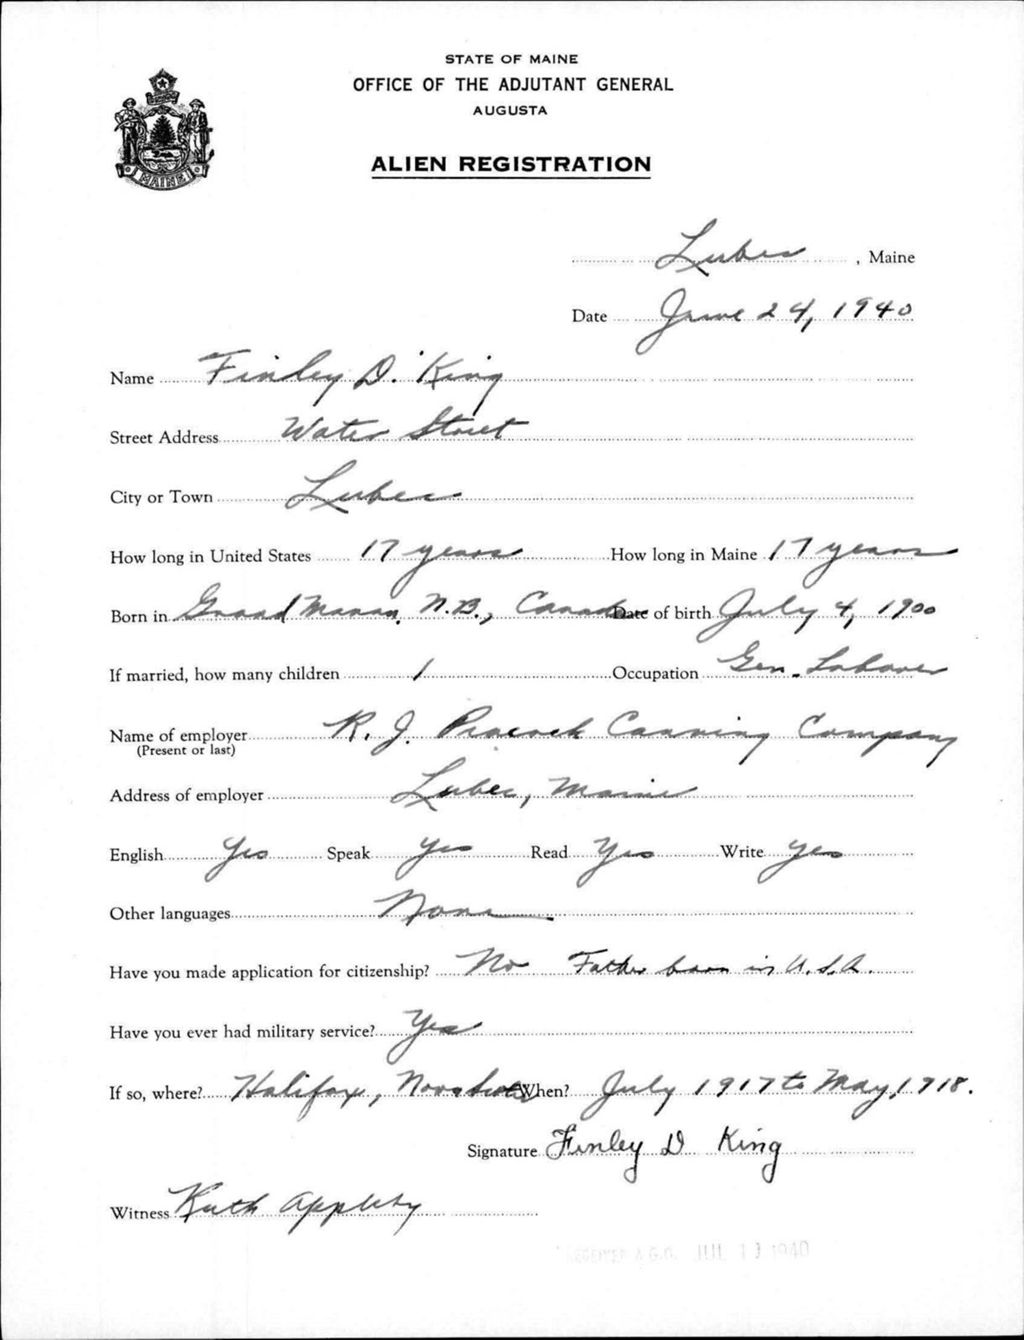 STATE OF MAINE
OFFICE OF THE ADJUTANT GENERAL
AUGUSTA
ALIEN REGISTRATION
MAINE
Lubec, Maine
Date June 24, 1940
Name Finley D. King
Street Address Water Street
City or Town Lubec
How long in United States 17 years How long in Maine 17 years
Born in Grand Manan, N.B., Canada Date of birth July 4, 1900
If married, how many children 1 Occupation Gen. Laborer
Name of employer R. J. Peacock Canning Company
(Present or last)
Address of employer Lubec, Maine
English Yes Speak Yes Read Yes Write Yes
Other languages None
Have you made application for citizenship? No Father born in U.S.A.
Have you ever had military service? Yes
If so, where? Halifax, Nova Scotia When? July 1917 to May, 1918.
Signature Finley D King
Witness Ruth Appleby
RECEIVED A.G.O. JUL 1940